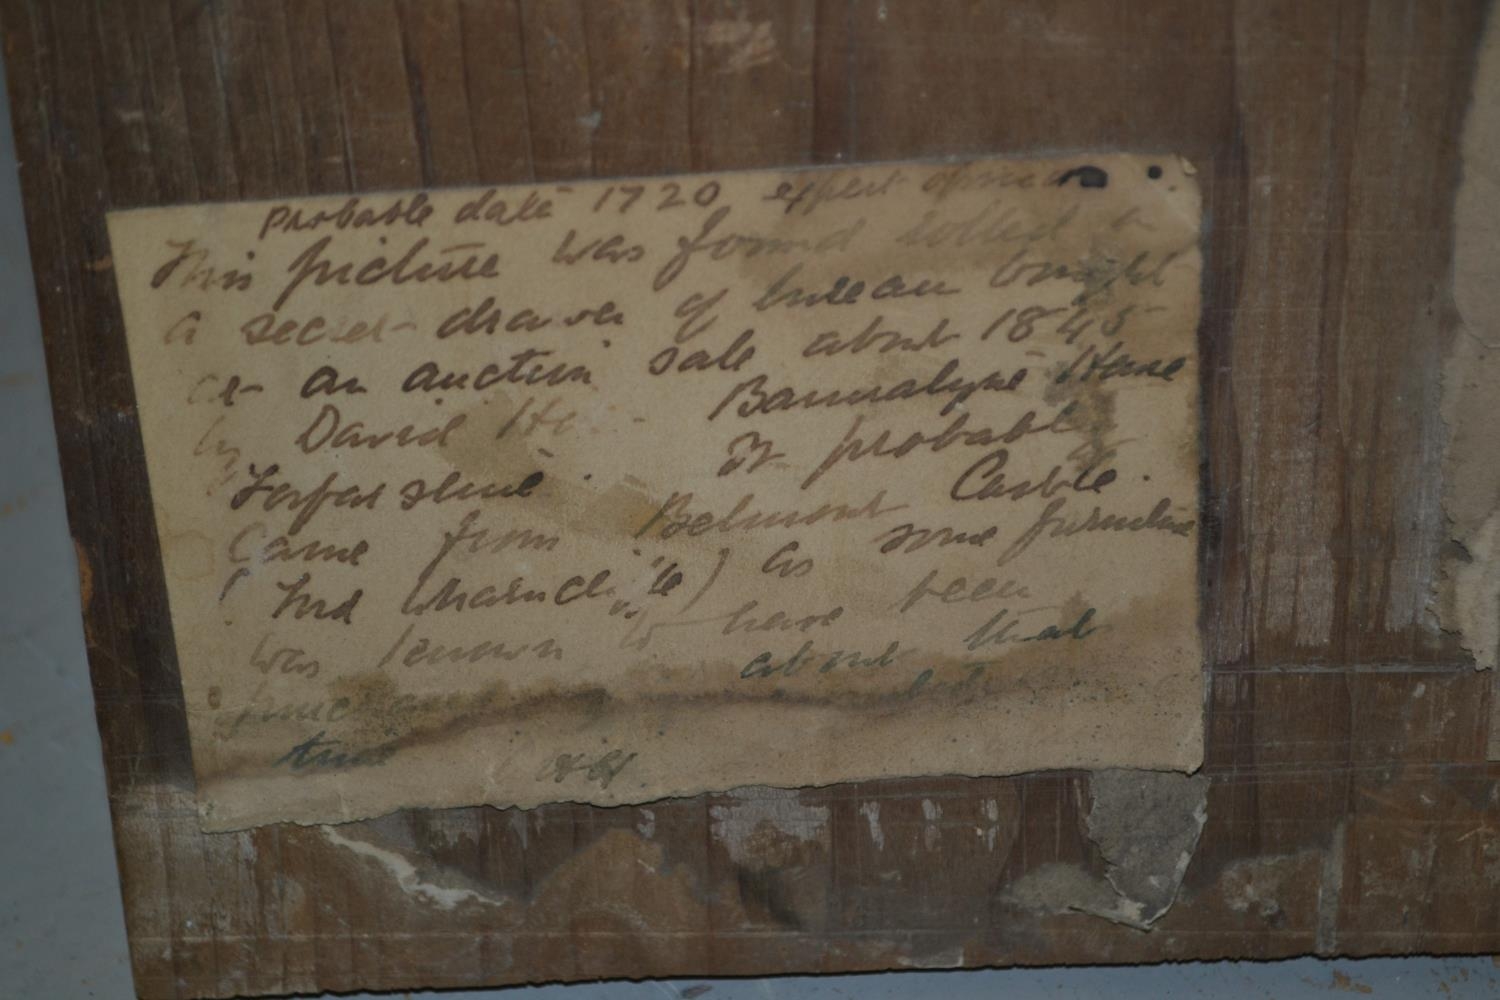 Probable date 1720 expert opinion
This picture was found rolled in
a secret drawer of bureau bought
at an auction sale about 1845
by David Bannalyne House
Forfarshire. It probably
Came from Belmont Castle.
(Lord Wharncliffe) as some furniture
was known to have been
purchased about that
time